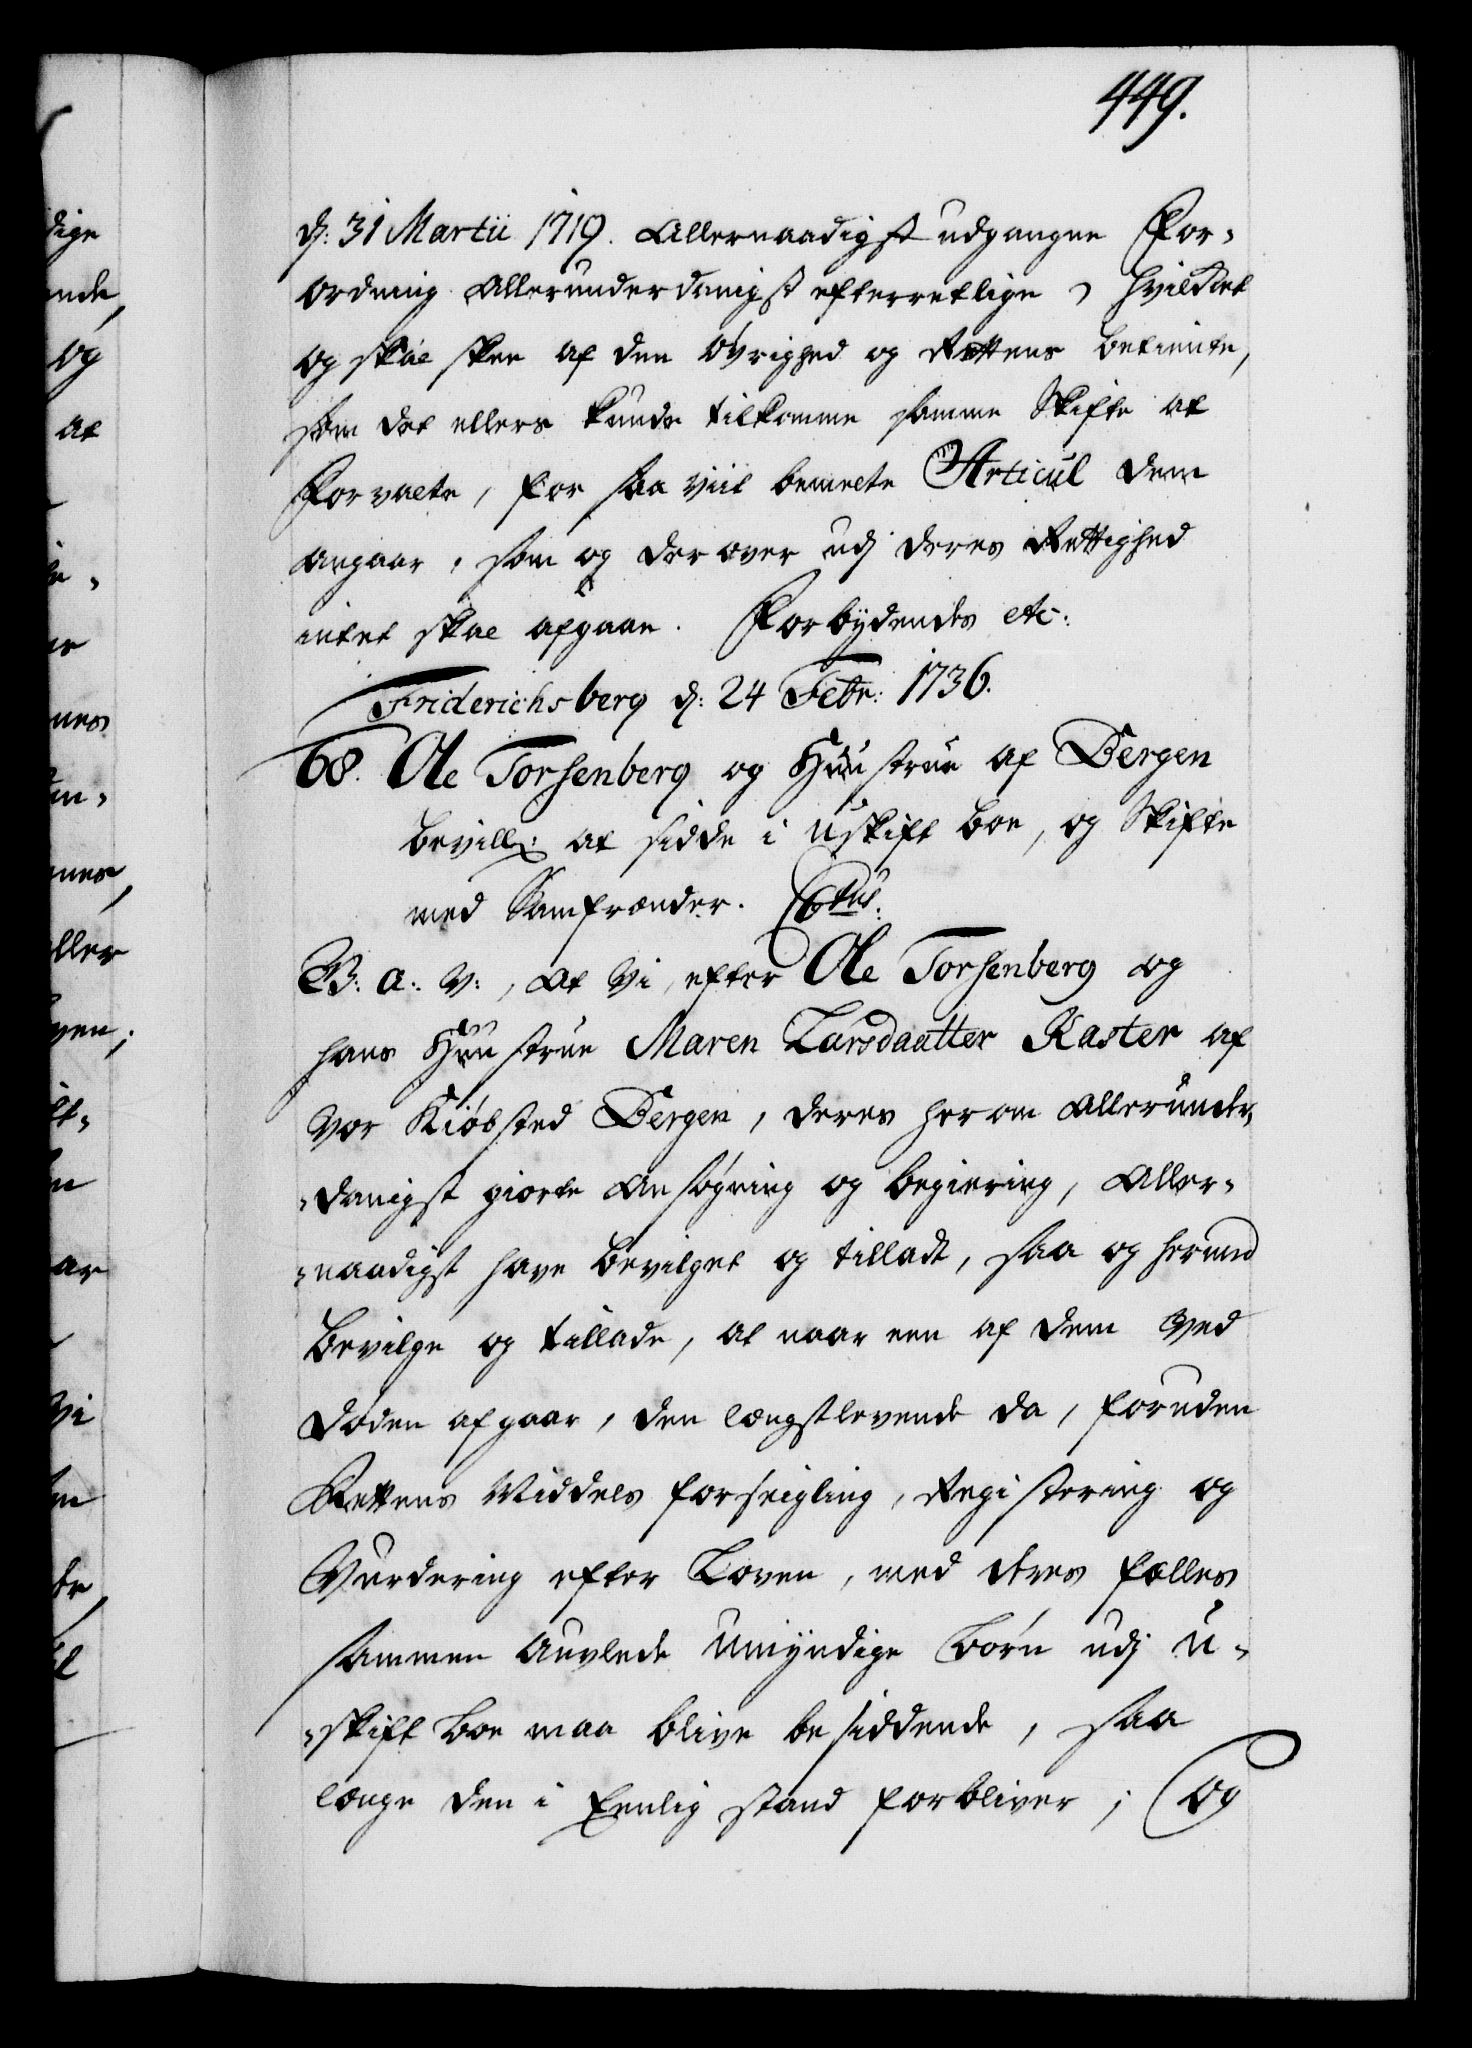 449.
d: 31 Martii 1719. Allernaadigst udgangne For-
ordning allerunderdanigst efterretlige, hvilcket
og skal skee af den Øvrighed og Rettens betiente,
som det ellers kunde tilkomme samme Skifte at
forvalte, for saa viit bemelte Articul dem
angaar, som og derover udj deres Rettighed
intet skal afgaae. Forbydendes etc:
Friderichsberg d: 24 Febr: 1736.
68. Ole Torsenberg og Huustrue af Bergen
bevill: at sidde i uskift boe, og Skifte
med Samfrænder.
B: a: V:, at Vi, efter Ole Torsenberg og
hans Huustrue Maren Larsdaatter Kaster af
vor Kiøbsted Bergen, deres herom allerunder-
danigst giorte Ansøgning og begiering, Aller-
naadigst have bevilget og tilladt, saa og hermed
bevilge og tillade, at naar een af dem ved
døden afgaar, den længstlevende da, foruden
Rettens Middels forseigling, Registering og
Vurdering efter Loven, med deres fælles
sammen auvlede umÿndige Børn udj u-
skift boe maa blive besiddende, saa
længe den i Eenlig stand forbliver; Og
dige
ende,
og
at
nes
ller
ven;
ar
Vi